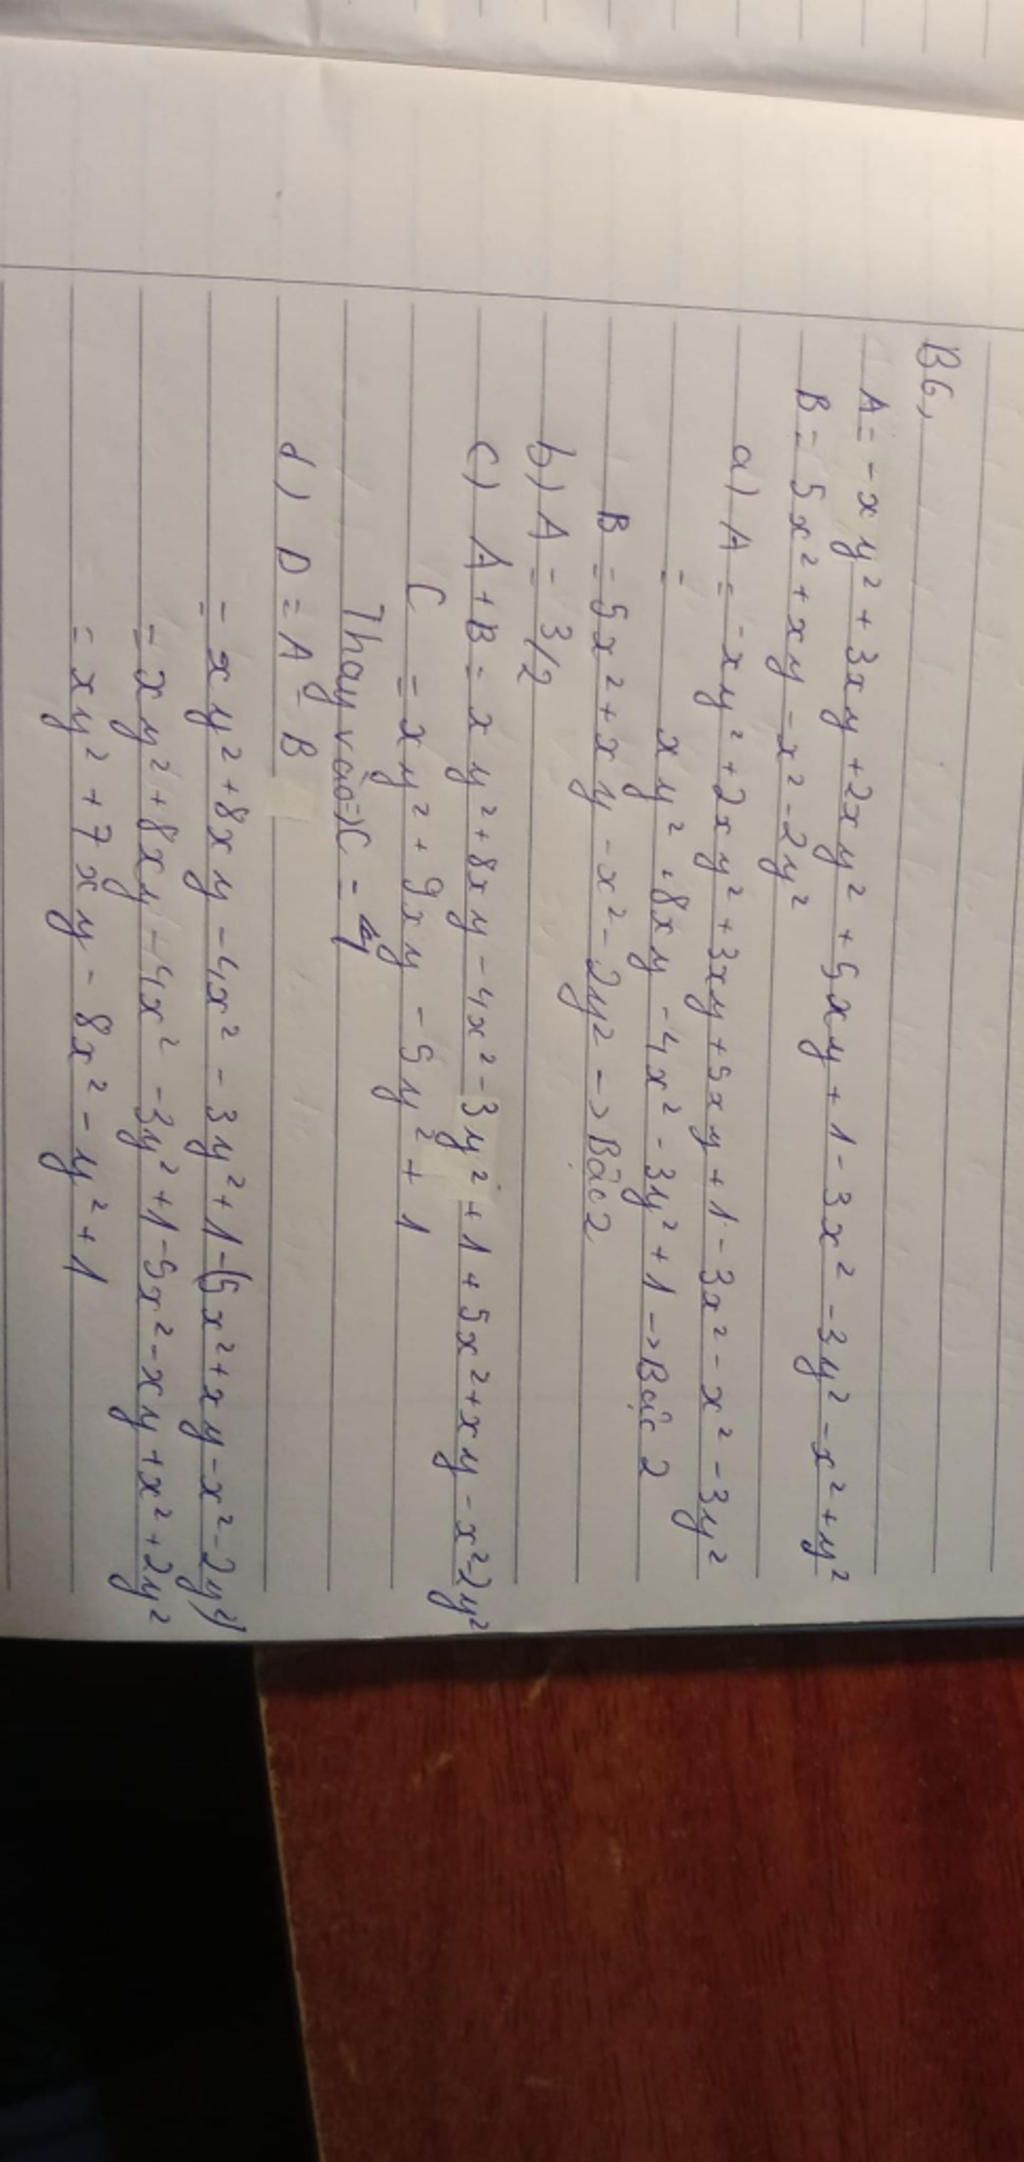 B6,
A = - xy² + 3xy + 2xy² + 5xy + 1 - 3x² - 3y² - x² + y²
B = 5x² + xy - x² - 2y²
a) A = - xy² + 2xy² + 3xy + 5xy + 1 - 3x² - x² - 3y²
= xy² + 8xy - 4x² - 3y² + 1 -> Bậc 2
B = 5x² + xy - x² - 2y² -> Bậc 2
b) A = 3/2
c) A + B = xy² + 8xy - 4x² - 3y² + 1 + 5x² + xy - x² - 2y²
C = xy² + 9xy - 5y² + 1
Thay vào => C =
d) D = A - B
= xy² + 8xy - 4x² - 3y² + 1 - (5x² + xy - x² - 2y²)
= xy² + 8xy - 4x² - 3y² + 1 - 5x² - xy + x² + 2y²
= xy² + 7xy - 8x² - y² + 1